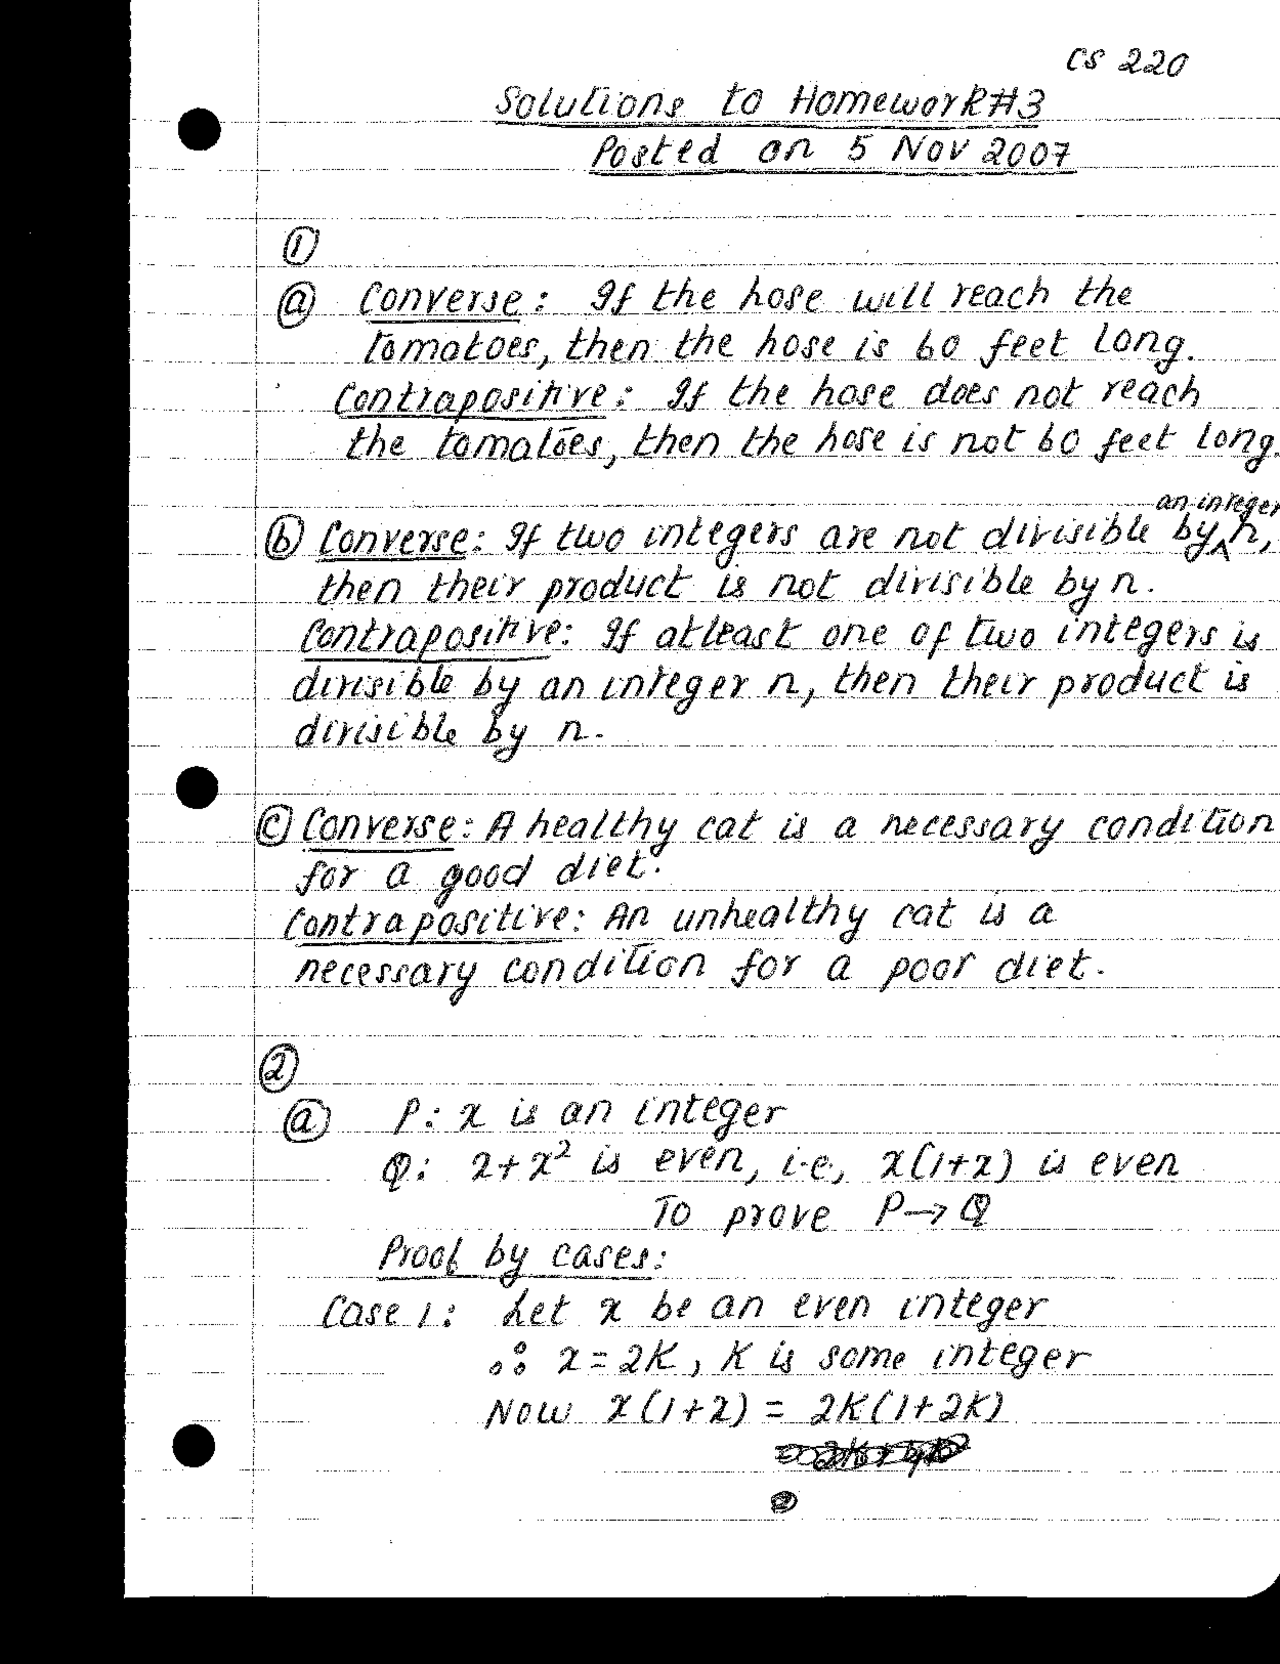 CS 220
Solutions to Homework#3
Posted on 5 Nov 2007
①
ⓐ Converse: If the hose will reach the
tomatoes, then the hose is 60 feet long.
Contrapositive: If the hose does not reach
the tomatoes, then the hose is not 60 feet long.
an integer
ⓑ Converse: If two integers are not divisible by n,
then their product is not divisible by n.
Contrapositive: If atleast one of two integers is
divisible by an integer n, then their product is
divisible by n.
ⓒ Converse: A healthy cat is a necessary condition
for a good diet.
Contrapositive: An unhealthy cat is a
necessary condition for a poor diet.
②
ⓐ P: x is an integer
Q: x+x² is even, i.e., x(1+x) is even
To prove P→Q
Proof by cases:
Case 1: Let x be an even integer
∴ x=2K, K is some integer
Now x(1+x) = 2K(1+2K)